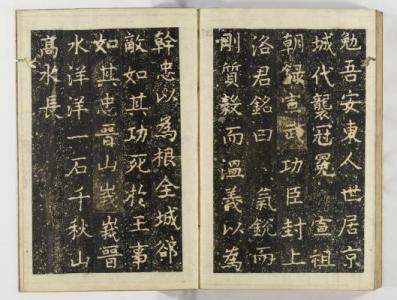 勉吾安東人世居京
城代襲冠冕 宣祖
朝録宣武功臣封上
洛君銘曰 氣銳而
剛質毅而溫義以為
幹忠以為根全城郤
敵如其功死於王事
如其忠晉山峩峩晉
水洋洋一石千秋山
髙水長